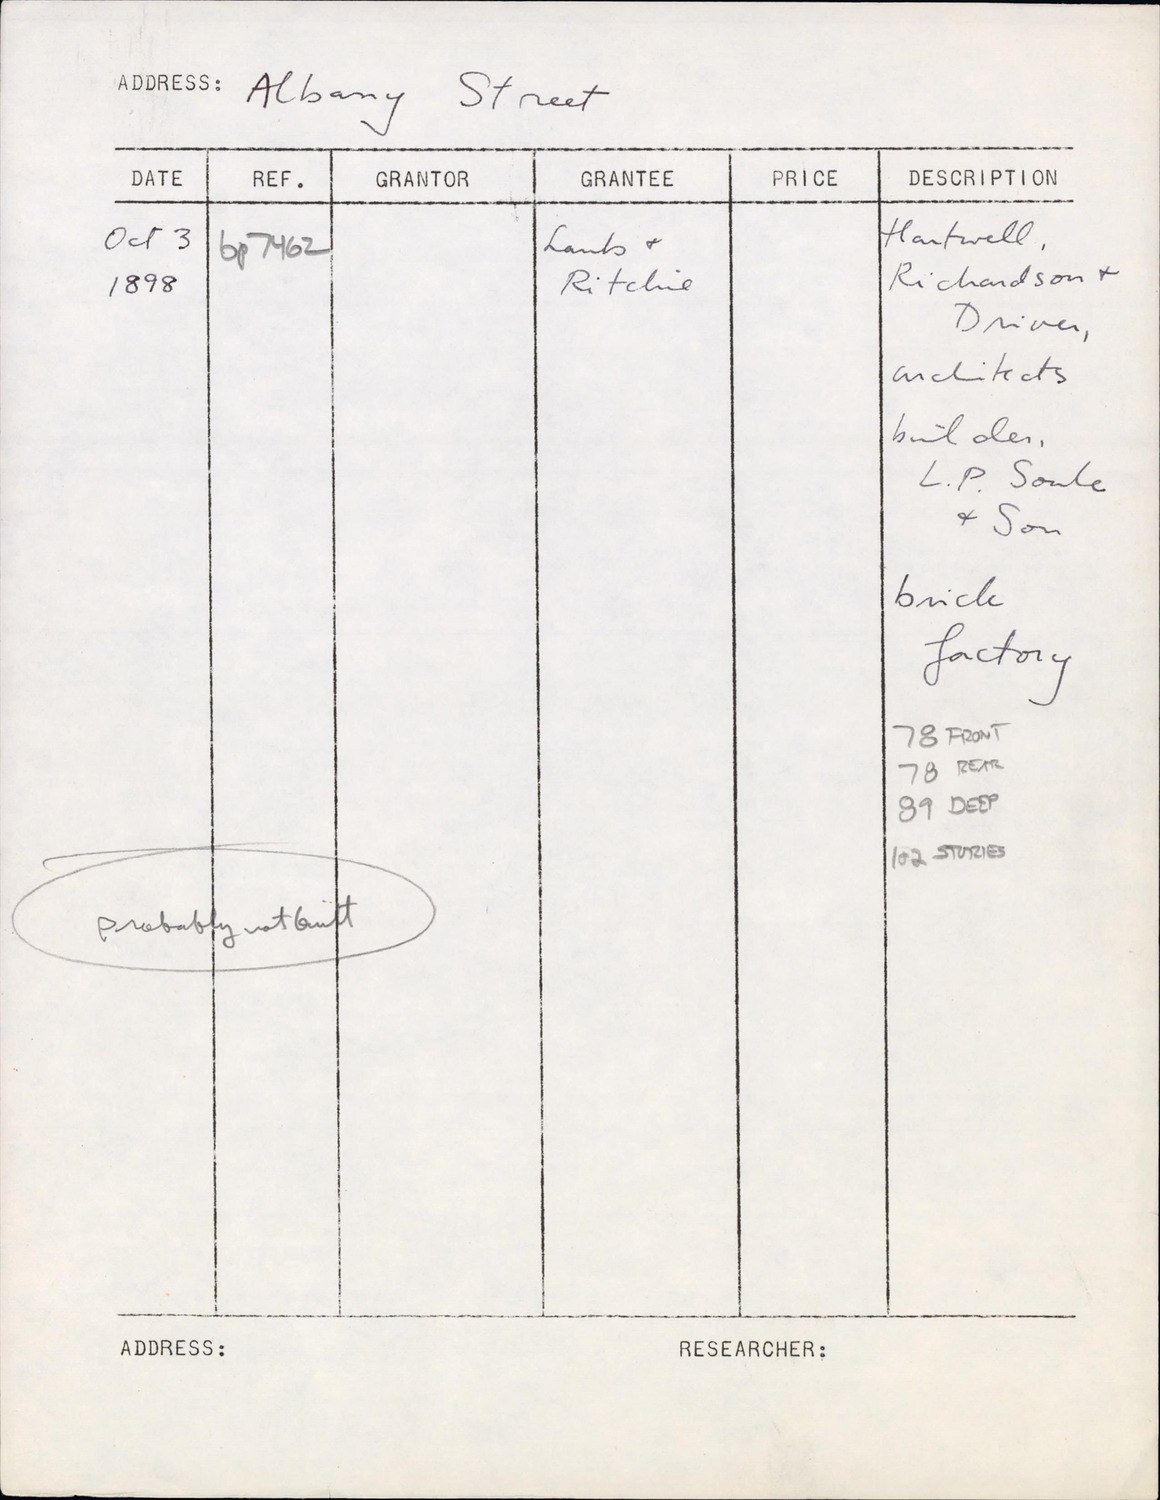 ADDRESS: Albany Street
DATE REF. GRANTOR GRANTEE PRICE DESCRIPTION
Oct 3 bp 7462 Lamb + Hartwell,
1898 Ritchie Richardson +
Driver,
architects
builder,
L.P. Soule
+ Son
brick
factory
78 FRONT
78 REAR
89 DEEP
1 or 2 STORIES
probably not built
ADDRESS: RESEARCHER: